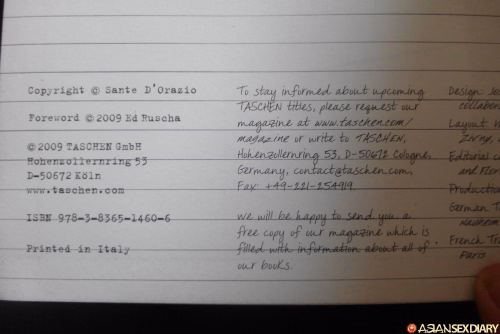 Copyright © Sante D'Orazio
Foreword © 2009 Ed Ruscha
© 2009 TASCHEN GmbH
Hohenzollernring 53
D-50672 Köln
www.taschen.com
ISBN 978-3-8365-1460-6
Printed in Italy
To stay informed about upcoming
TASCHEN titles, please request our
magazine at www.taschen.com/
magazine or write to TASCHEN,
Hohenzollernring 53, D-50672 Cologne,
Germany, contact@taschen.com,
Fax: +49-221-254919.
We will be happy to send you a
free copy of our magazine which is
filled with information about all of
our books.
Design
Layout
Editorial
and
Production
German
French
Paris
ASIANSEXDIARY